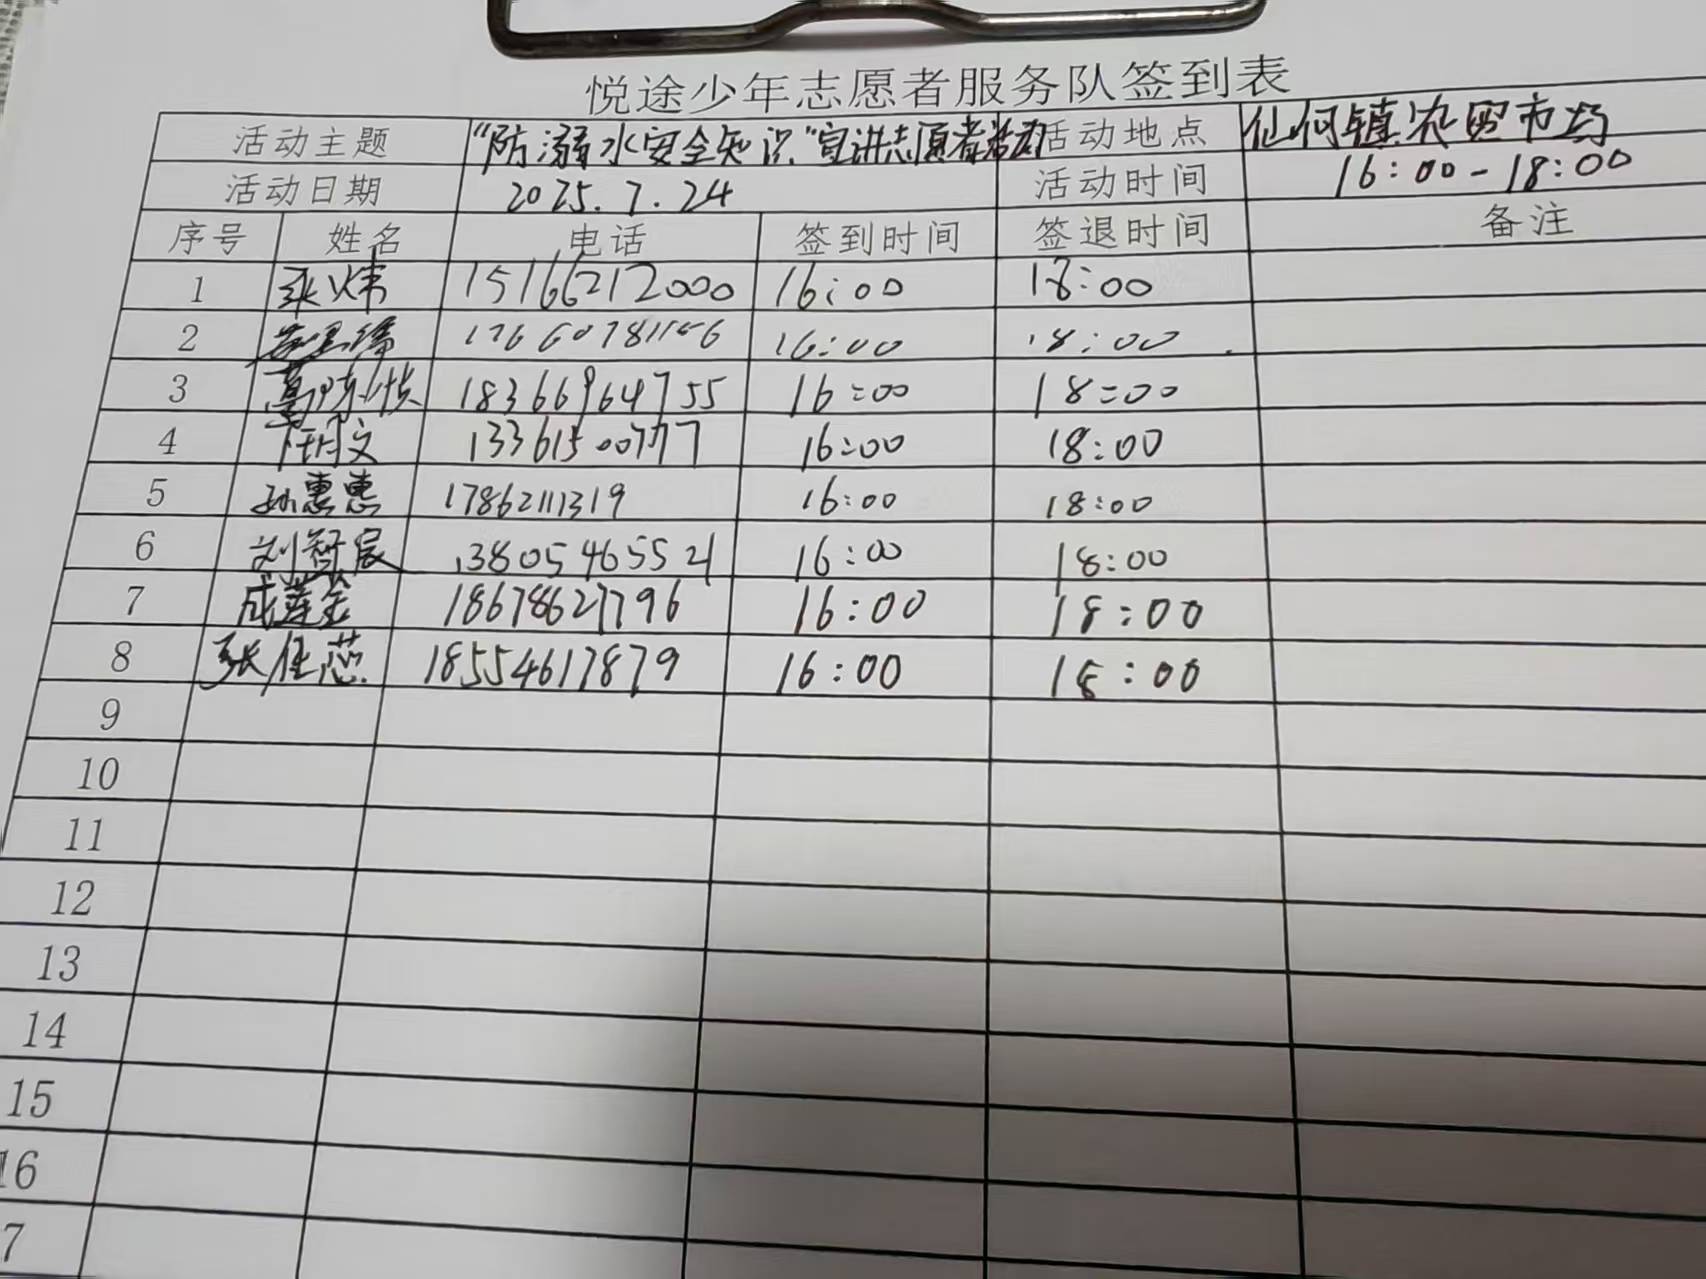 悦途少年志愿者服务队签到表
活动主题 "防溺水安全知识"宣讲志愿者活动 活动地点 仙河镇农贸市场
活动日期 2025.7.24 活动时间 16:00-18:00
序号 姓名 电话 签到时间 签退时间 备注
1 张炜 15166212000 16:00 18:00
2 16:00 18:00
3 18366964755 16:00 18:00
4 13361500777 16:00 18:00
5 孙惠惠 17862111319 16:00 18:00
6 刘智宸 13805465521 16:00 18:00
7 成莲金 18678627796 16:00 18:00
8 张佳蕊 18554617879 16:00 18:00
9
10
11
12
13
14
15
16
7